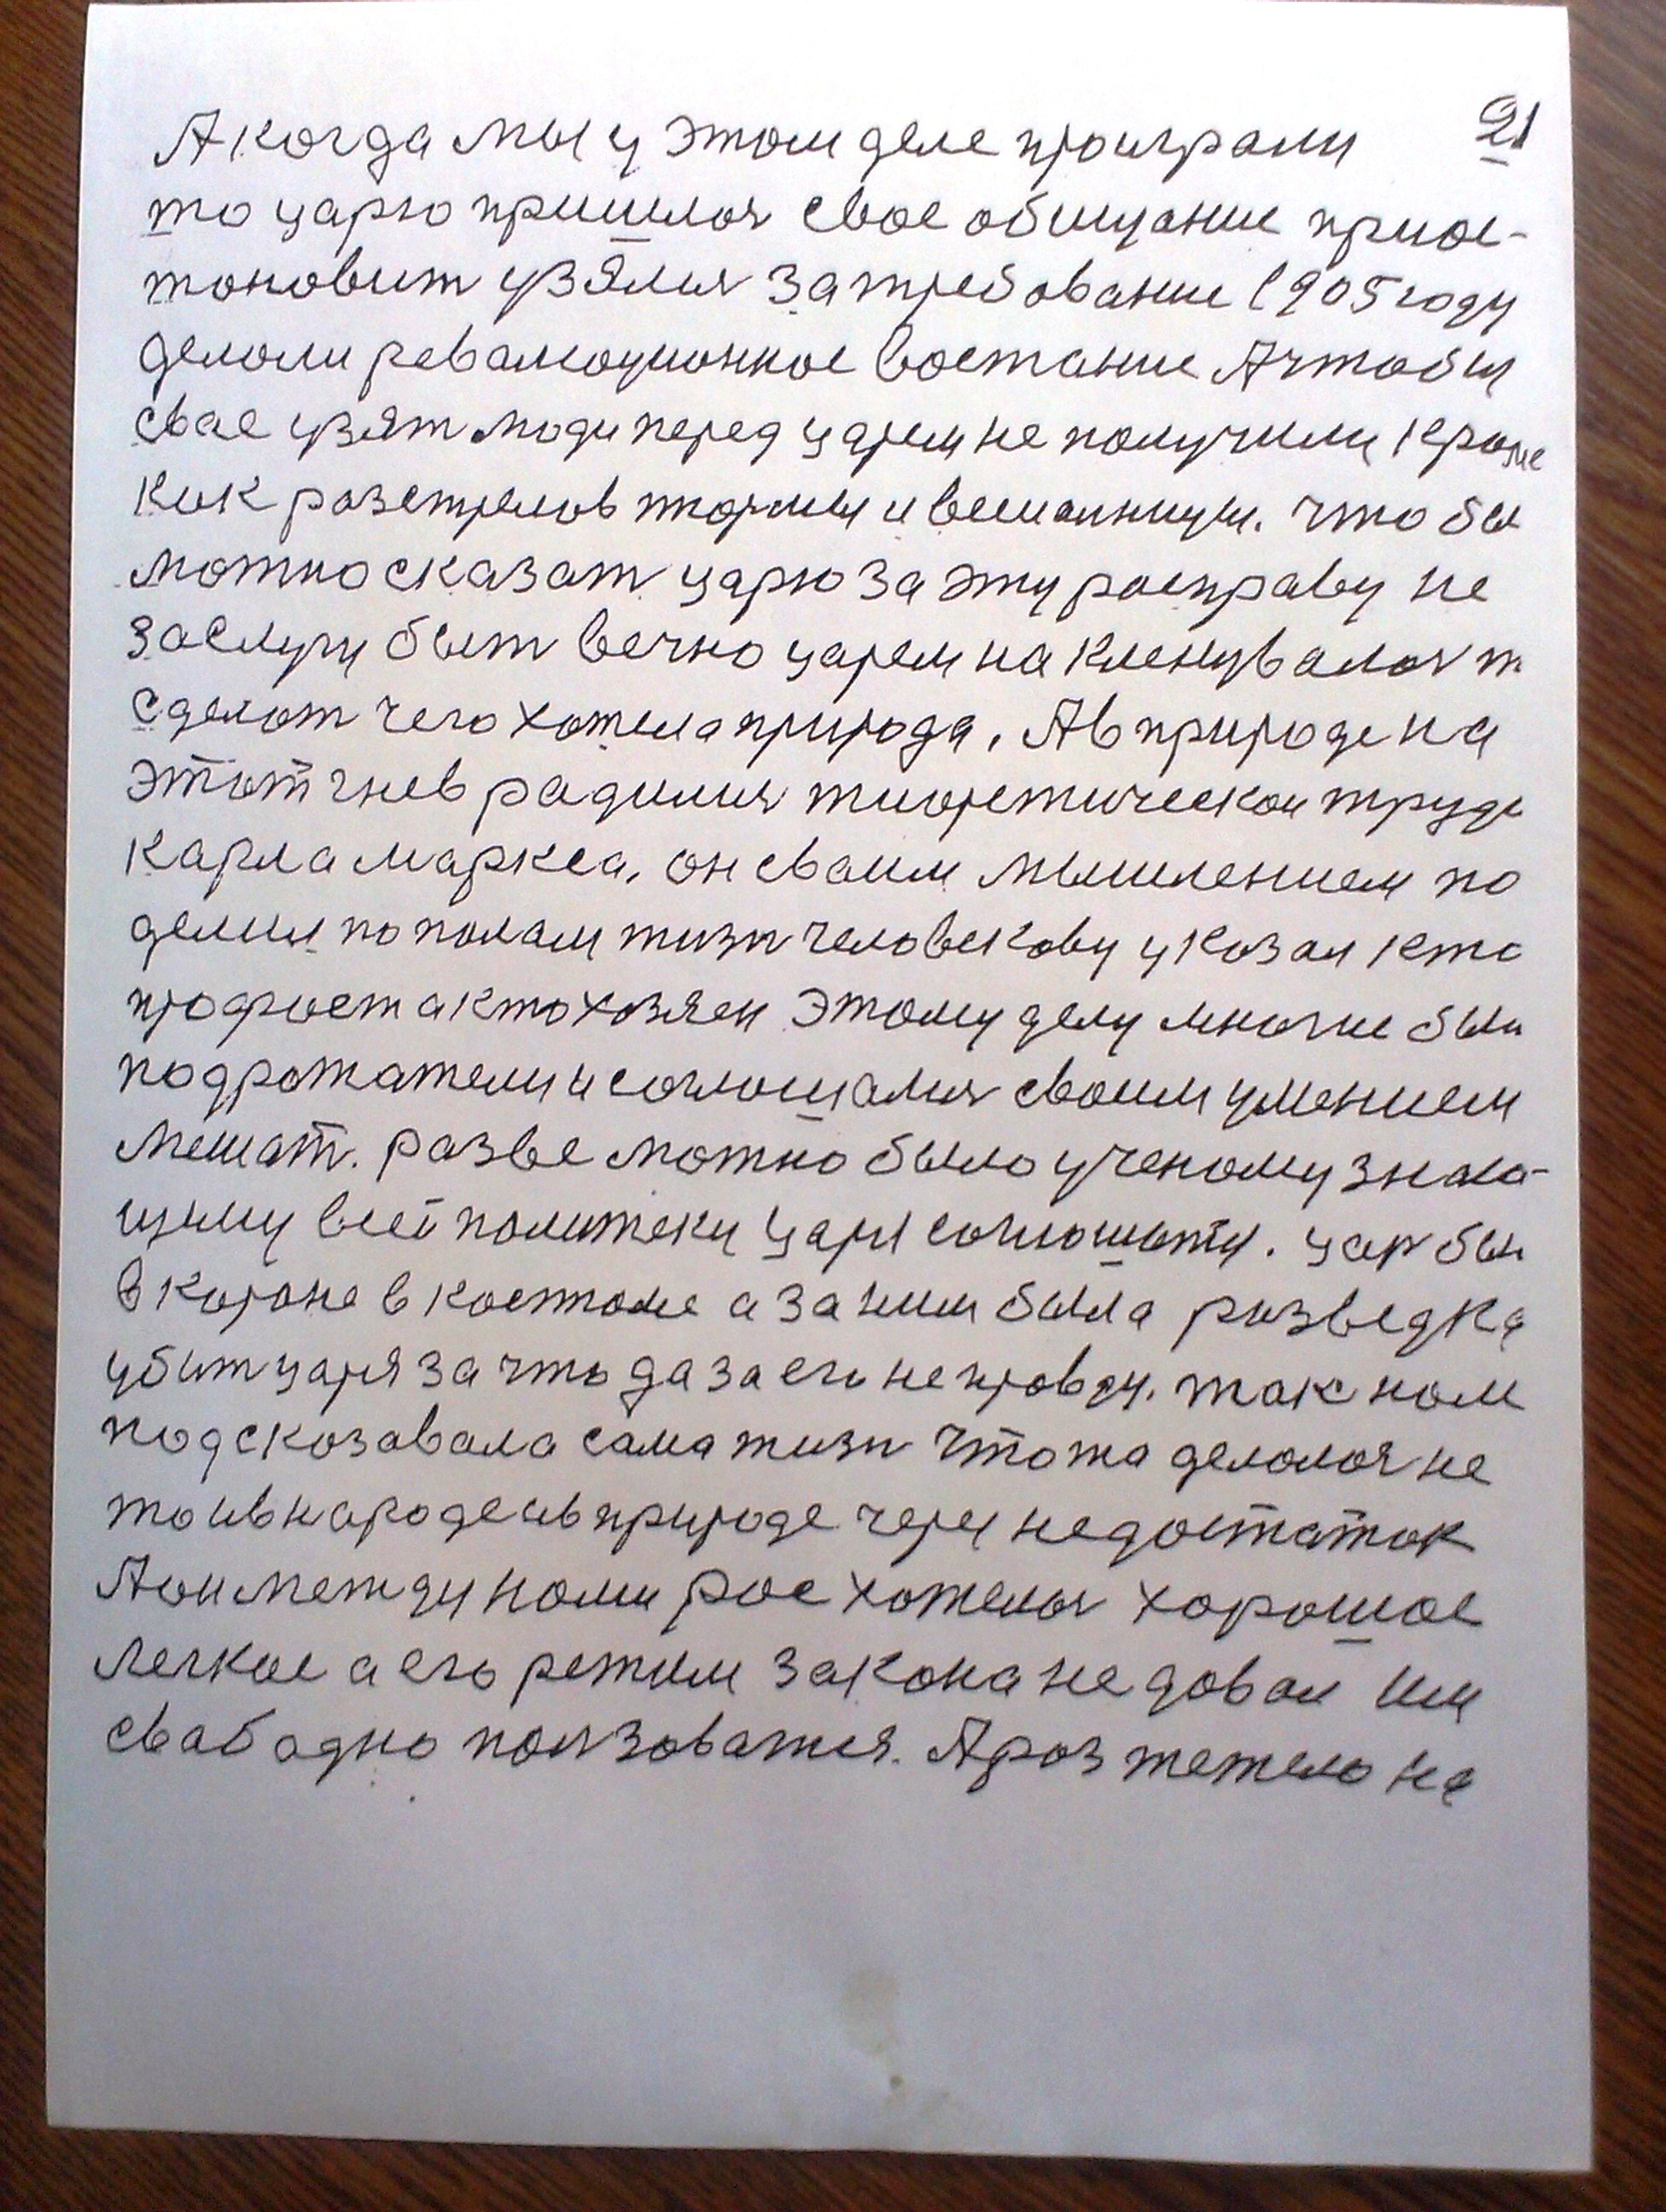 21
А когда мы у этом деле проиграли
то царю пришлося свое обищание приос-
тоновит узялися за требование 1905 году
делоли революционное востание А чтобы
свае узят люди перед царем не получили кроме
как разстрелов тюрмы и вешанницы. что бы
можно сказат царю за эту росправу не
заслугу быт вечно царем на
сделат чего хотела природа, А в природе на
этот гнев радился тиоретическои труд
карла маркса, он сваим мышлением по
делил по полам жизн человекову указал кто
а кто хозяен этому делу многие был
подрожатели и соглошалися своим умением
мешат. разве можно было ученому знаю-
щиму всеі политеку царя соглошатся. цар был
в короне в костюме а за ним была разведка
убит царя за что да за его не провду. так ном
подсказавала сама жизн что жа делолося не
то и в народе и в природе через недостаток
А он между номи рос хотелося хорошое
легкое а его режим закона не довал им
свабадно ползоватся. А роз тежело на